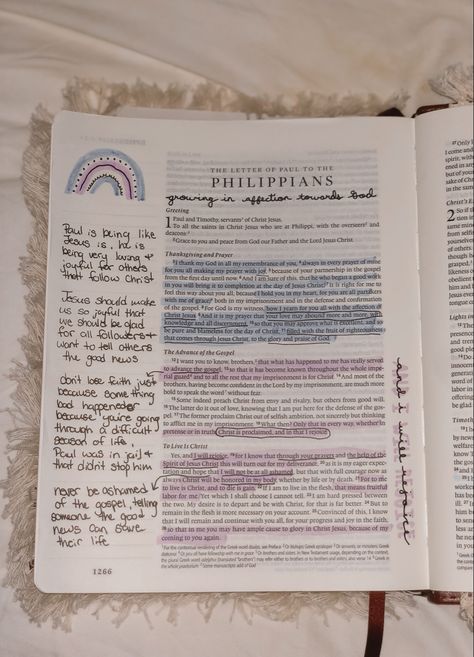 THE LETTER OF PAUL TO THE
PHILIPPIANS
growing in affection towards God
Greeting
1 Paul and Timothy, servants of Christ Jesus,
To all the saints in Christ Jesus who are at Philippi, with the overseers and
deacons:
2 Grace to you and peace from God our Father and the Lord Jesus Christ.
Thanksgiving and Prayer
3 I thank my God in all my remembrance of you, 4 always in every prayer of
mine for you all making my prayer with joy, 5 because of your partnership in the gospel
from the first day until now. 6 And I am sure of this, that he who began a good work
in you will bring it to completion at the day of Jesus Christ. 7 It is right for me to
feel this way about you all, because I hold you in my heart, for you are all partakers
with me of grace, both in my imprisonment and in the defense and confirmation
of the gospel. 8 For God is my witness, how I yearn for you all with the affection of
Christ Jesus. 9 And it is my prayer that your love may abound more and more, with
knowledge and all discernment, 10 so that you may approve what is excellent, and so
be pure and blameless for the day of Christ, 11 filled with the fruit of righteousness
that comes through Jesus Christ, to the glory and praise of God.
The Advance of the Gospel
12 I want you to know, brothers, that what has happened to me has really served
to advance the gospel, 13 so that it has become known throughout the whole impe-
rial guard and to all the rest that my imprisonment is for Christ. 14 And most of the
brothers, having become confident in the Lord by my imprisonment, are much more
bold to speak the word without fear.
15 Some indeed preach Christ from envy and rivalry, but others from good will.
16 The latter do it out of love, knowing that I am put here for the defense of the gos-
pel. 17 The former proclaim Christ out of selfish ambition, not sincerely but thinking
to afflict me in my imprisonment. 18 What then? Only that in every way, whether in
pretense or in truth, Christ is proclaimed, and in that I rejoice.
To Live Is Christ
Yes, and I will rejoice, 19 for I know that through your prayers and the help of the
Spirit of Jesus Christ this will turn out for my deliverance, 20 as it is my eager expec-
tation and hope that I will not be at all ashamed, but that with full courage now as
always Christ will be honored in my body, whether by life or by death. 21 For to me
to live is Christ, and to die is gain. 22 If I am to live in the flesh, that means fruitful
labor for me. Yet which I shall choose I cannot tell. 23 I am hard pressed between
the two. My desire is to depart and be with Christ, for that is far better. 24 But to
remain in the flesh is more necessary on your account. 25 Convinced of this, I know
that I will remain and continue with you all, for your progress and joy in the faith,
26 so that in me you may have ample cause to glory in Christ Jesus, because of my
coming to you again.
1266
Paul is being like
Jesus is, he is
being very loving &
joyful for others
that follow Christ
Jesus should make
us so joyful that
we should be glad
for all followers &
want to tell others
the good news
don't lose faith just
because something
bad happened or
because you're going
through a difficult
season of life.
Paul was in jail &
that didn't stop him
never be ashamed
of the gospel, telling
someone the good
news can save
their life
and i will rejoice